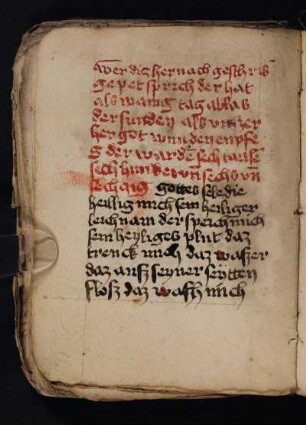 wer diz hernach geschrib
ge pet sprich der hat
als manig tag ablas
der sunden als unszer
her got wunden enpfe
g der ward sech tausē
sech hundert vn̄ sechs vn̄
sechczig gottes sele die
heilig mich sein heiliger
leichnam der speich mich
sein heyliges plut daz
trenck mich daz waszer
daz ausz seyner seytten
flosz daz wasch mich